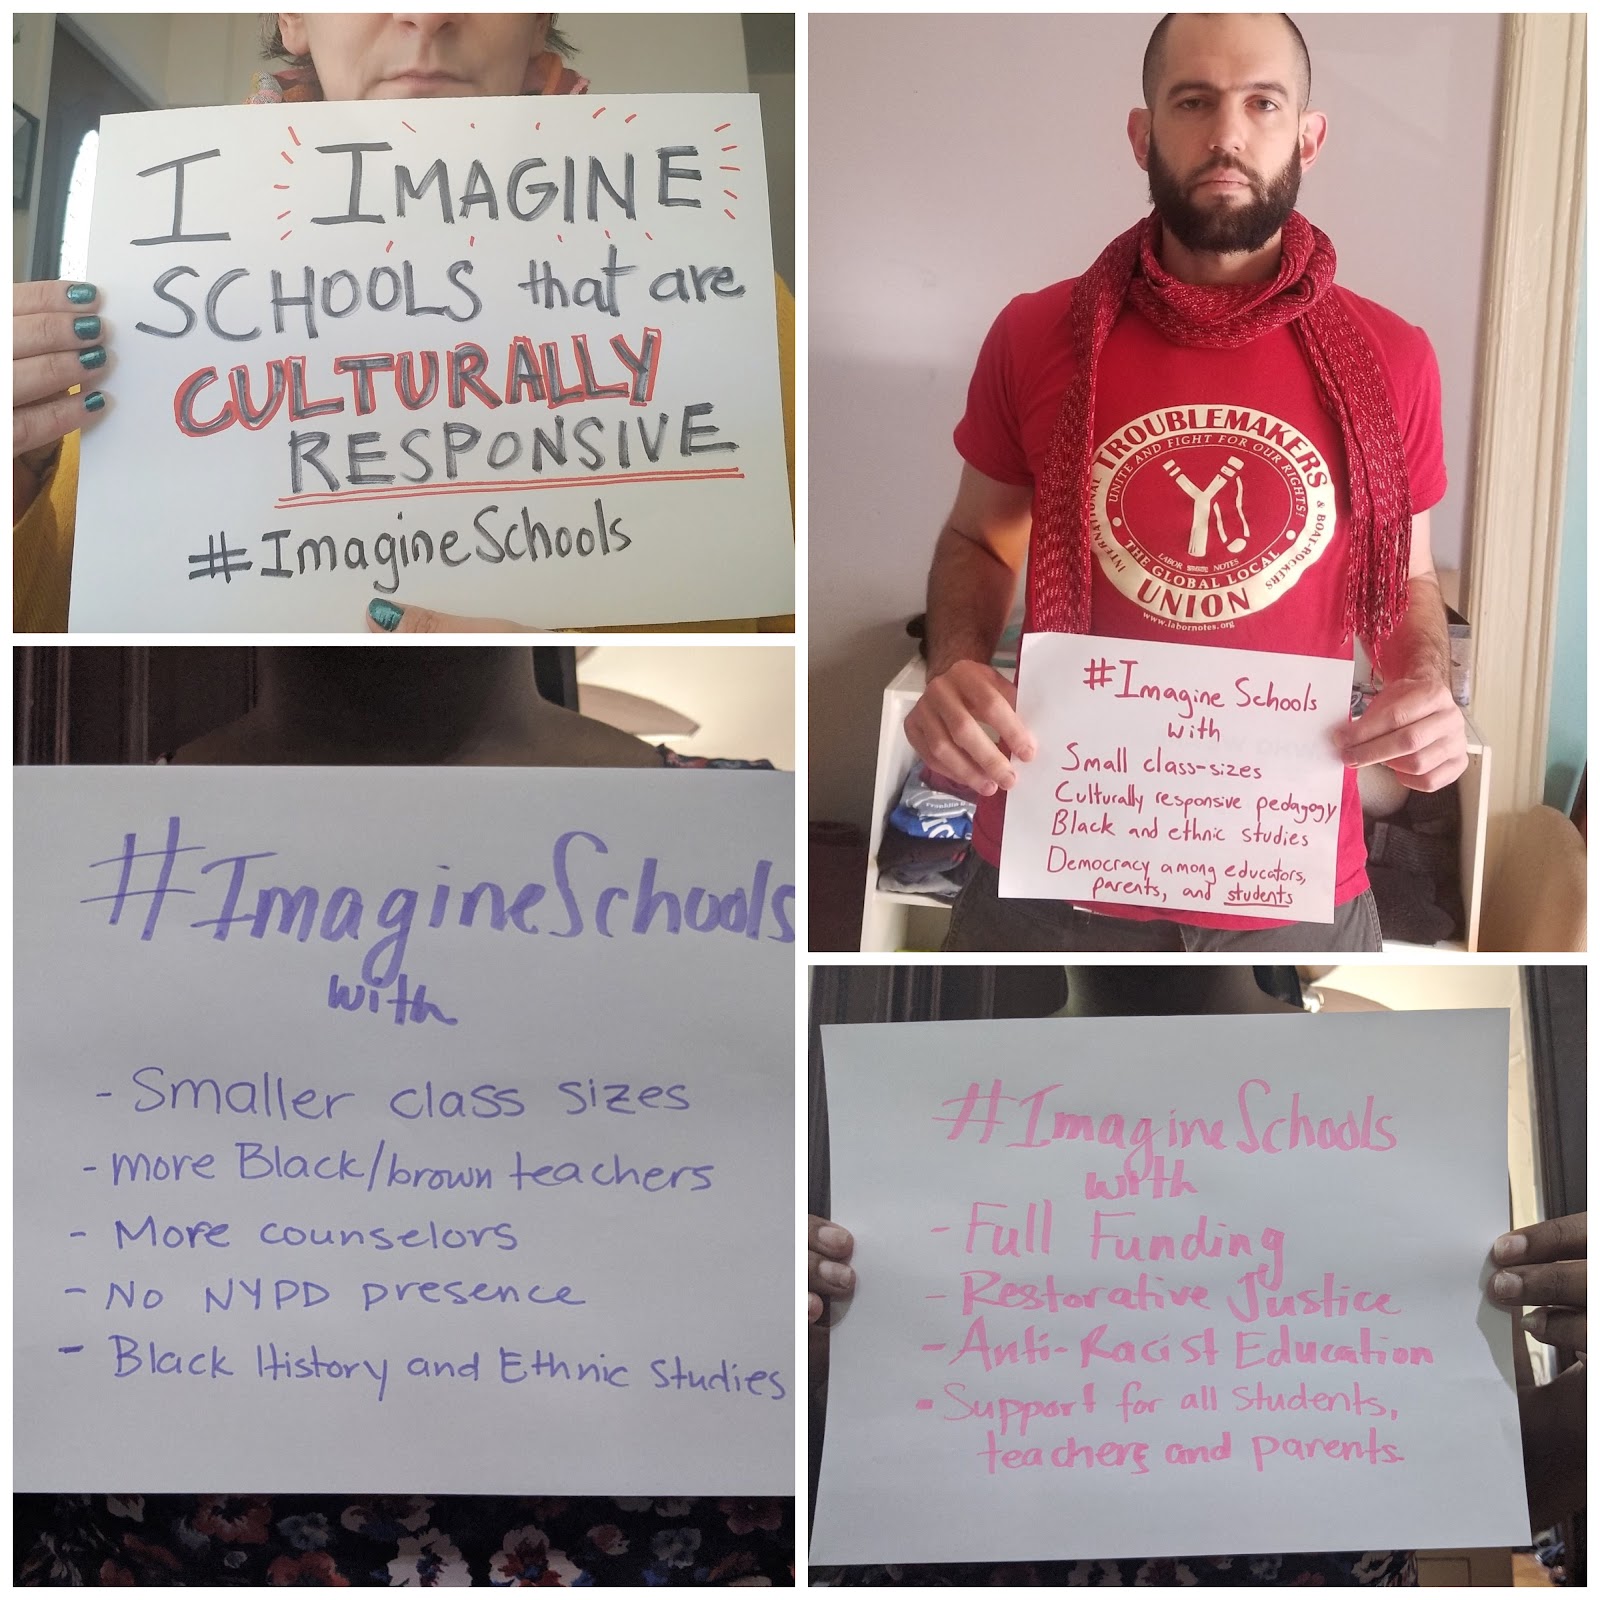 I IMAGINE
SCHOOLS that are
CULTURALLY
RESPONSIVE
#ImagineSchools
INTERNATIONAL TROUBLEMAKERS & BOAT-ROCKERS
UNITE AND FIGHT FOR OUR RIGHTS!
LABOR NOTES
THE GLOBAL LOCAL
UNION
www.labornotes.org
#Imagine Schools
with
Small class-sizes
Culturally responsive pedagogy
Black and ethnic studies
Democracy among educators,
parents, and students
#ImagineSchools
with
- Smaller class sizes
- more Black/brown teachers
- More counselors
- No NYPD presence
- Black History and Ethnic Studies
#ImagineSchools
with
- Full Funding
- Restorative Justice
- Anti-Racist Education
- Support for all students,
teachers and parents.